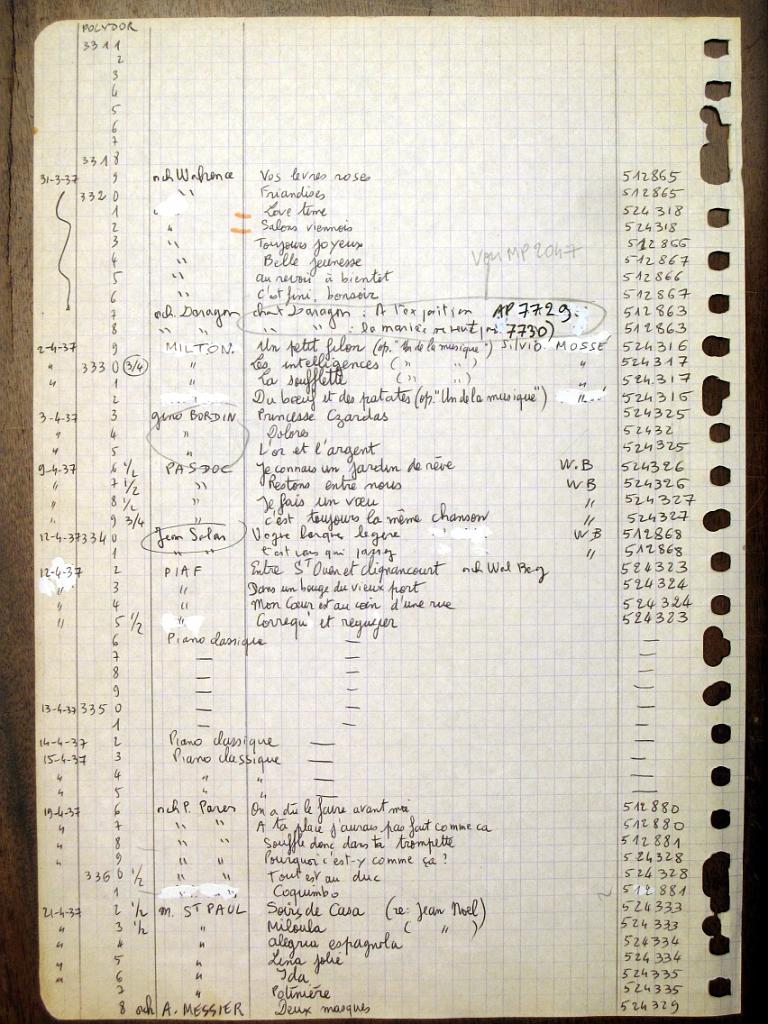 POLYDOR
3311
2
3
4
5
6
7
3318
31-3-37 9 och Wahonce Vos levres roses 512865
3320 " Friandises 512865
1 " = Love time 524318
2 " = Salons viennois 524318
3 " Toujours joyeux 512866
4 " Belle jeunesse 512867
5 " au revoir à bientet 512866
6 " C'est fini, bonsoir 512867
Voir MP2047
7 och. Daragon chant Daragon : A l'ex AP 7729 512863
8 " " " " : la mariée 7730) 512863
2-4-37 9 MILTON. Un petit filon (op. "Un de la musique") Silvio MOSSÉ 524316
" 3330 (3/4) " Les intelligences ( " " ) " 524317
" 1 " La soufflette ( " " ) " 524317
2 Du boeuf et des patates (op. "Un de la musique") " 524316
3-4-37 3 gino BORDIN Princesse Czardas 524325
" 4 " Dolores 52432
" 5 " L'or et l'argent 524325
9-4-37 6 1/2 PASDOC Je connais un jardin de rêve W.B 524326
" 7 1/2 " Restons entre nous WB 524326
" 8 1/2 " Je fais un voeu " 524327
" 9 3/4 " C'est toujours la même chanson " 524327
12-4-37 3340 Jean Solar Vogue barque legere WB 512868
1 " " C'est vous qui passez " 512868
12-4-37 2 PIAF Entre St Ouen et Clignancourt och Wal Berg 524323
" 3 " Dans un bouge du vieux port 524324
" 4 " Mon Coeur est au coin d'une rue 524324
" 5 1/2 " Correqu' et reguyer 524323
6 Piano classique — —
7 — — —
8 — — —
9 — — —
13-4-37 3350 — — —
1 — — —
14-4-37 2 Piano classique — —
15-4-37 3 Piano classique — —
" 4 " — —
" 5 " — —
19-4-37 6 och P. Pares On a dû le faire avant moi 512880
" 7 " " A ta place j'aurais pas fait comme ca 512880
" 8 " " Souffle donc dans ta trompette 512881
" 9 " " Pourquoi c'est-y comme ça ? 524328
3360 1/2 " Tout est au duc 524328
1 " Coquimbo 512881
21-4-37 2 1/2 M. ST PAUL Soirs de Casa (re: Jean Noel) 524333
" 3 1/2 " Miloula ( " ) 524333
" 4 " alegria espagnola 524334
" 5 " Lena jolie 524334
6 " Ida 524335
7 " Potinière 524335
8 och A. MESSIER Deux masques 524329